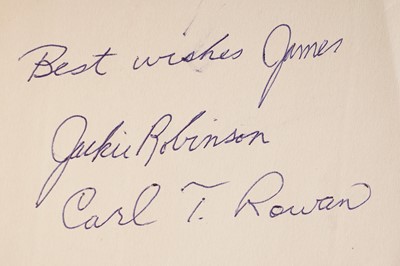 Best wishes James
Jackie Robinson
Carl T. Rowan